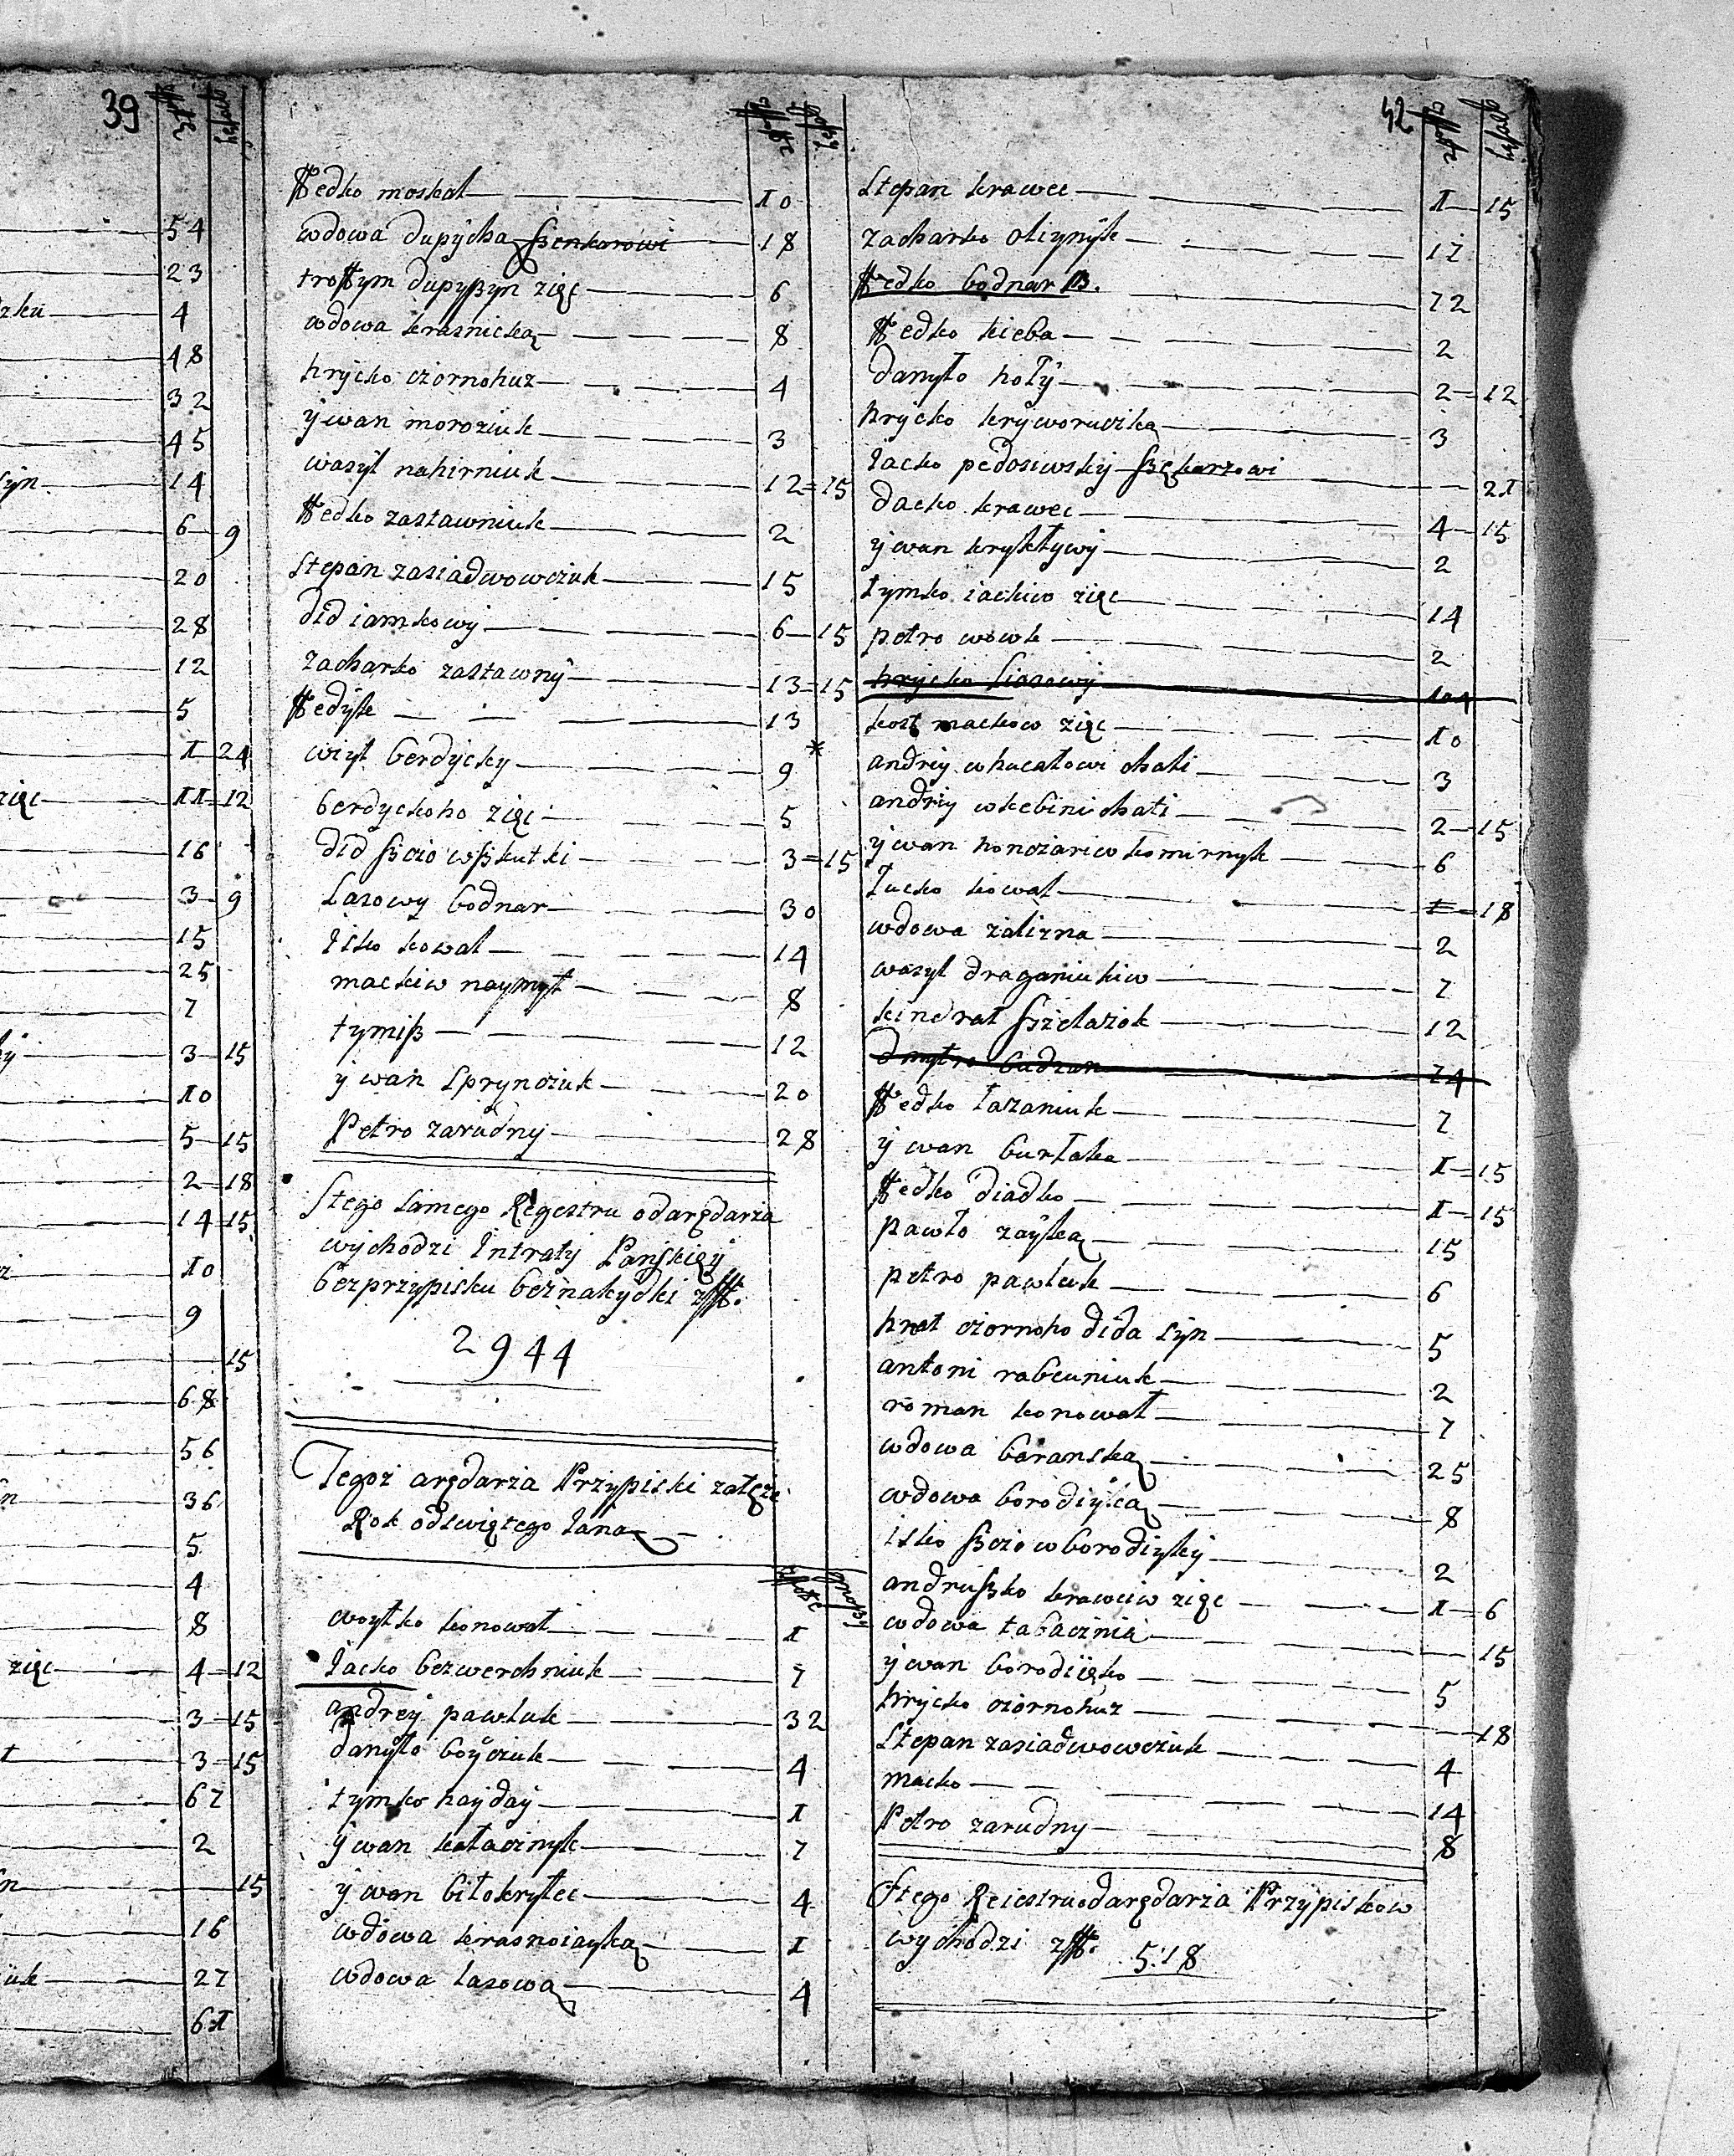 39
54
23
4
48
32
45
14
6 9
20
28
12
5
1 24
zięc 11 12
16
3 9
15
25
7
3 15
10
5 15
2 18
14 15
10
9
15
68
56
36
5
4
8
zięc 4 12
3 15
3 15
67
2
15
16
27
61
złote groszy
ffedko moskal 10
wdowa dupycha ßenkarowi 18
troffym dupyßyn zięc 6
wdowa krasnicka 8
hrycko czornohuz 4
ywan moroziuk 3
wasyl nahirniuk 12 15
ffedko zastawniuk 2
Stepan zasiadwowcziuk 15
did iamkowy 6 15
zacharko zastawny 13 15
ffedyk 13
wiyt berdycky 9
berdyckoho zięć 5
did ßczo wßkutki 3 15
Lasowy bodnar 30
Isko kowal 14
mackiw naymyt 8
tymiß 12
ywan Sprynczuk 20
Petro zarudny 28
Stego Samego Regestru odarędarza
wychodzi Intraty Pańskiey
bez przypisku beznakydki zł.
2944
Tegoż arędarża Przypiski załęże
Rok odswiętego Jana
złote groszy
woytko konował 1
Jacko bezwerchniuk 7
andrey pawluk 32
danyło boyczuk 4
tymko hayday 1
ywan kołacznyk 7
ywan biłokryłec 4
wdowa krasnoiayska 1
wdowa lasowa 4
42
złote groszy
Stepan krawec 1 15
zacharko oliynyk 17
ffedko bodnar B. 72
ffedko kieba 2
danyło hoły 2 12
hrycko kryworuczka 3
Jacko pedosiwsky ßękarzowi 21
dacko krawec 4 15
ywan krykływy 2
tymko iackiw zięc 14
petro wowk 2
hrycko liasowy 104
kost mackow zięc 10
andriy whucałowi chati 3
andriy wkebini chati 2 15
ywan honczariw komirnyk 6
Jucko kowal 1 18
wdowa zalizna 2
wasyl draganiukiw 7
kindrat ßżelazok 12
dmytro budzan 74
ffedko łazaniuk 7
ywan burłaka 1 15
ffedko diadko 1 15
pawło zayka 15
petro pawluk 6
hnat czornoho dida Syn 5
antoni rabcuniuk 2
roman konował 7
wdowa baranska 25
wdowa borodiyca 8
isko ßczo wborodiyky 2
andrußko krawciw zięc 1 6
wdowa tabacznia 15
ywan borodiięko 5
hrycko czornohuz 18
Stepan zasiadwowcziuk 4
macko 14
Petro zarudny 8
Stego Reiestru odarędarża Przypiskow
wychodzi zł. 518